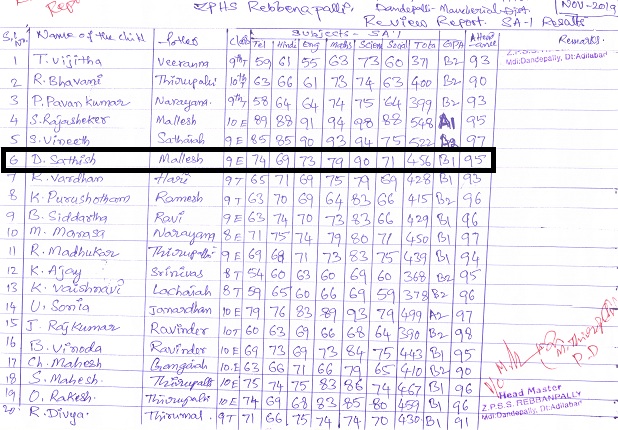 ZPHS Rebbenapalli, Dandepalli - Mancherial - Dist. NOV-2019
Review Report. SA-1 Results
S.No. Name of the child Father Class Subjects - SA-1 Attendance Remarks
Tel Hindi Eng Maths Scien Social Total GPA
1 T. Vijitha Veeranna 9th T 59 61 55 63 73 60 371 B2 93
Z.P.S.S. REBBANPALLY
Mdl:Dandepally, Dt:Adilabad
2 R. Bhavani Thirupathi 10th T 63 66 61 73 74 63 400 B2 90
3 P. Pavan kumar Narayana 9th T 58 64 64 74 75 64 399 B2 93
4 S. Rajasheker Mallesh 10 E 89 88 91 94 98 88 548 A1 95
5 S. Vineeth Sathaiah 9 E 85 85 90 93 94 75 522 A2 97
6 D. Sathish Mallesh 9 E 74 69 73 79 90 71 456 B1 95
7 K. Vardhan Hari 9 T 65 71 69 75 79 69 428 B1 93
8 K. Purushotham Ramesh 9 T 63 70 69 64 83 66 415 B2 96
9 B. Siddartha Ravi 9 E 63 74 70 73 83 66 429 B1 96
10 M. Manasa Narayana 8 E 71 75 74 79 80 71 450 B1 97
11 R. Madhukar Thirupathi 9 E 69 68 71 73 83 75 439 B1 94
12 K. Ajay Srinivas 8 T 54 60 63 60 69 60 368 B2 95
13 K. Vaishnavi Lachaiah 8 T 59 65 60 66 69 59 378 B2 96
14 U. Sonia Janardhan 10 E 79 76 83 89 93 79 499 A2 97
15 J. Raj Kumar Ravinder 10 T 60 63 69 66 68 64 390 B2 98
16 B. Vinoda Ravinder 10 E 70 69 73 84 75 443 B1 95
17 Ch. Mahesh Gangaiah 10 E 63 66 71 66 79 65 410 B2 90
18 S. Mahesh Thirupathi 10 E 75 74 75 83 86 74 467 B1 96
19 O. Rakesh Thirupathi 10 E 74 69 68 83 85 80 459 B1 96
20 R. Divya Thirumal 9 T 71 66 75 74 74 70 430 B1 91
P.D
Head Master
Z.P.S.S. REBBANPALLY
Mdl:Dandepally, Dt:Adilabad